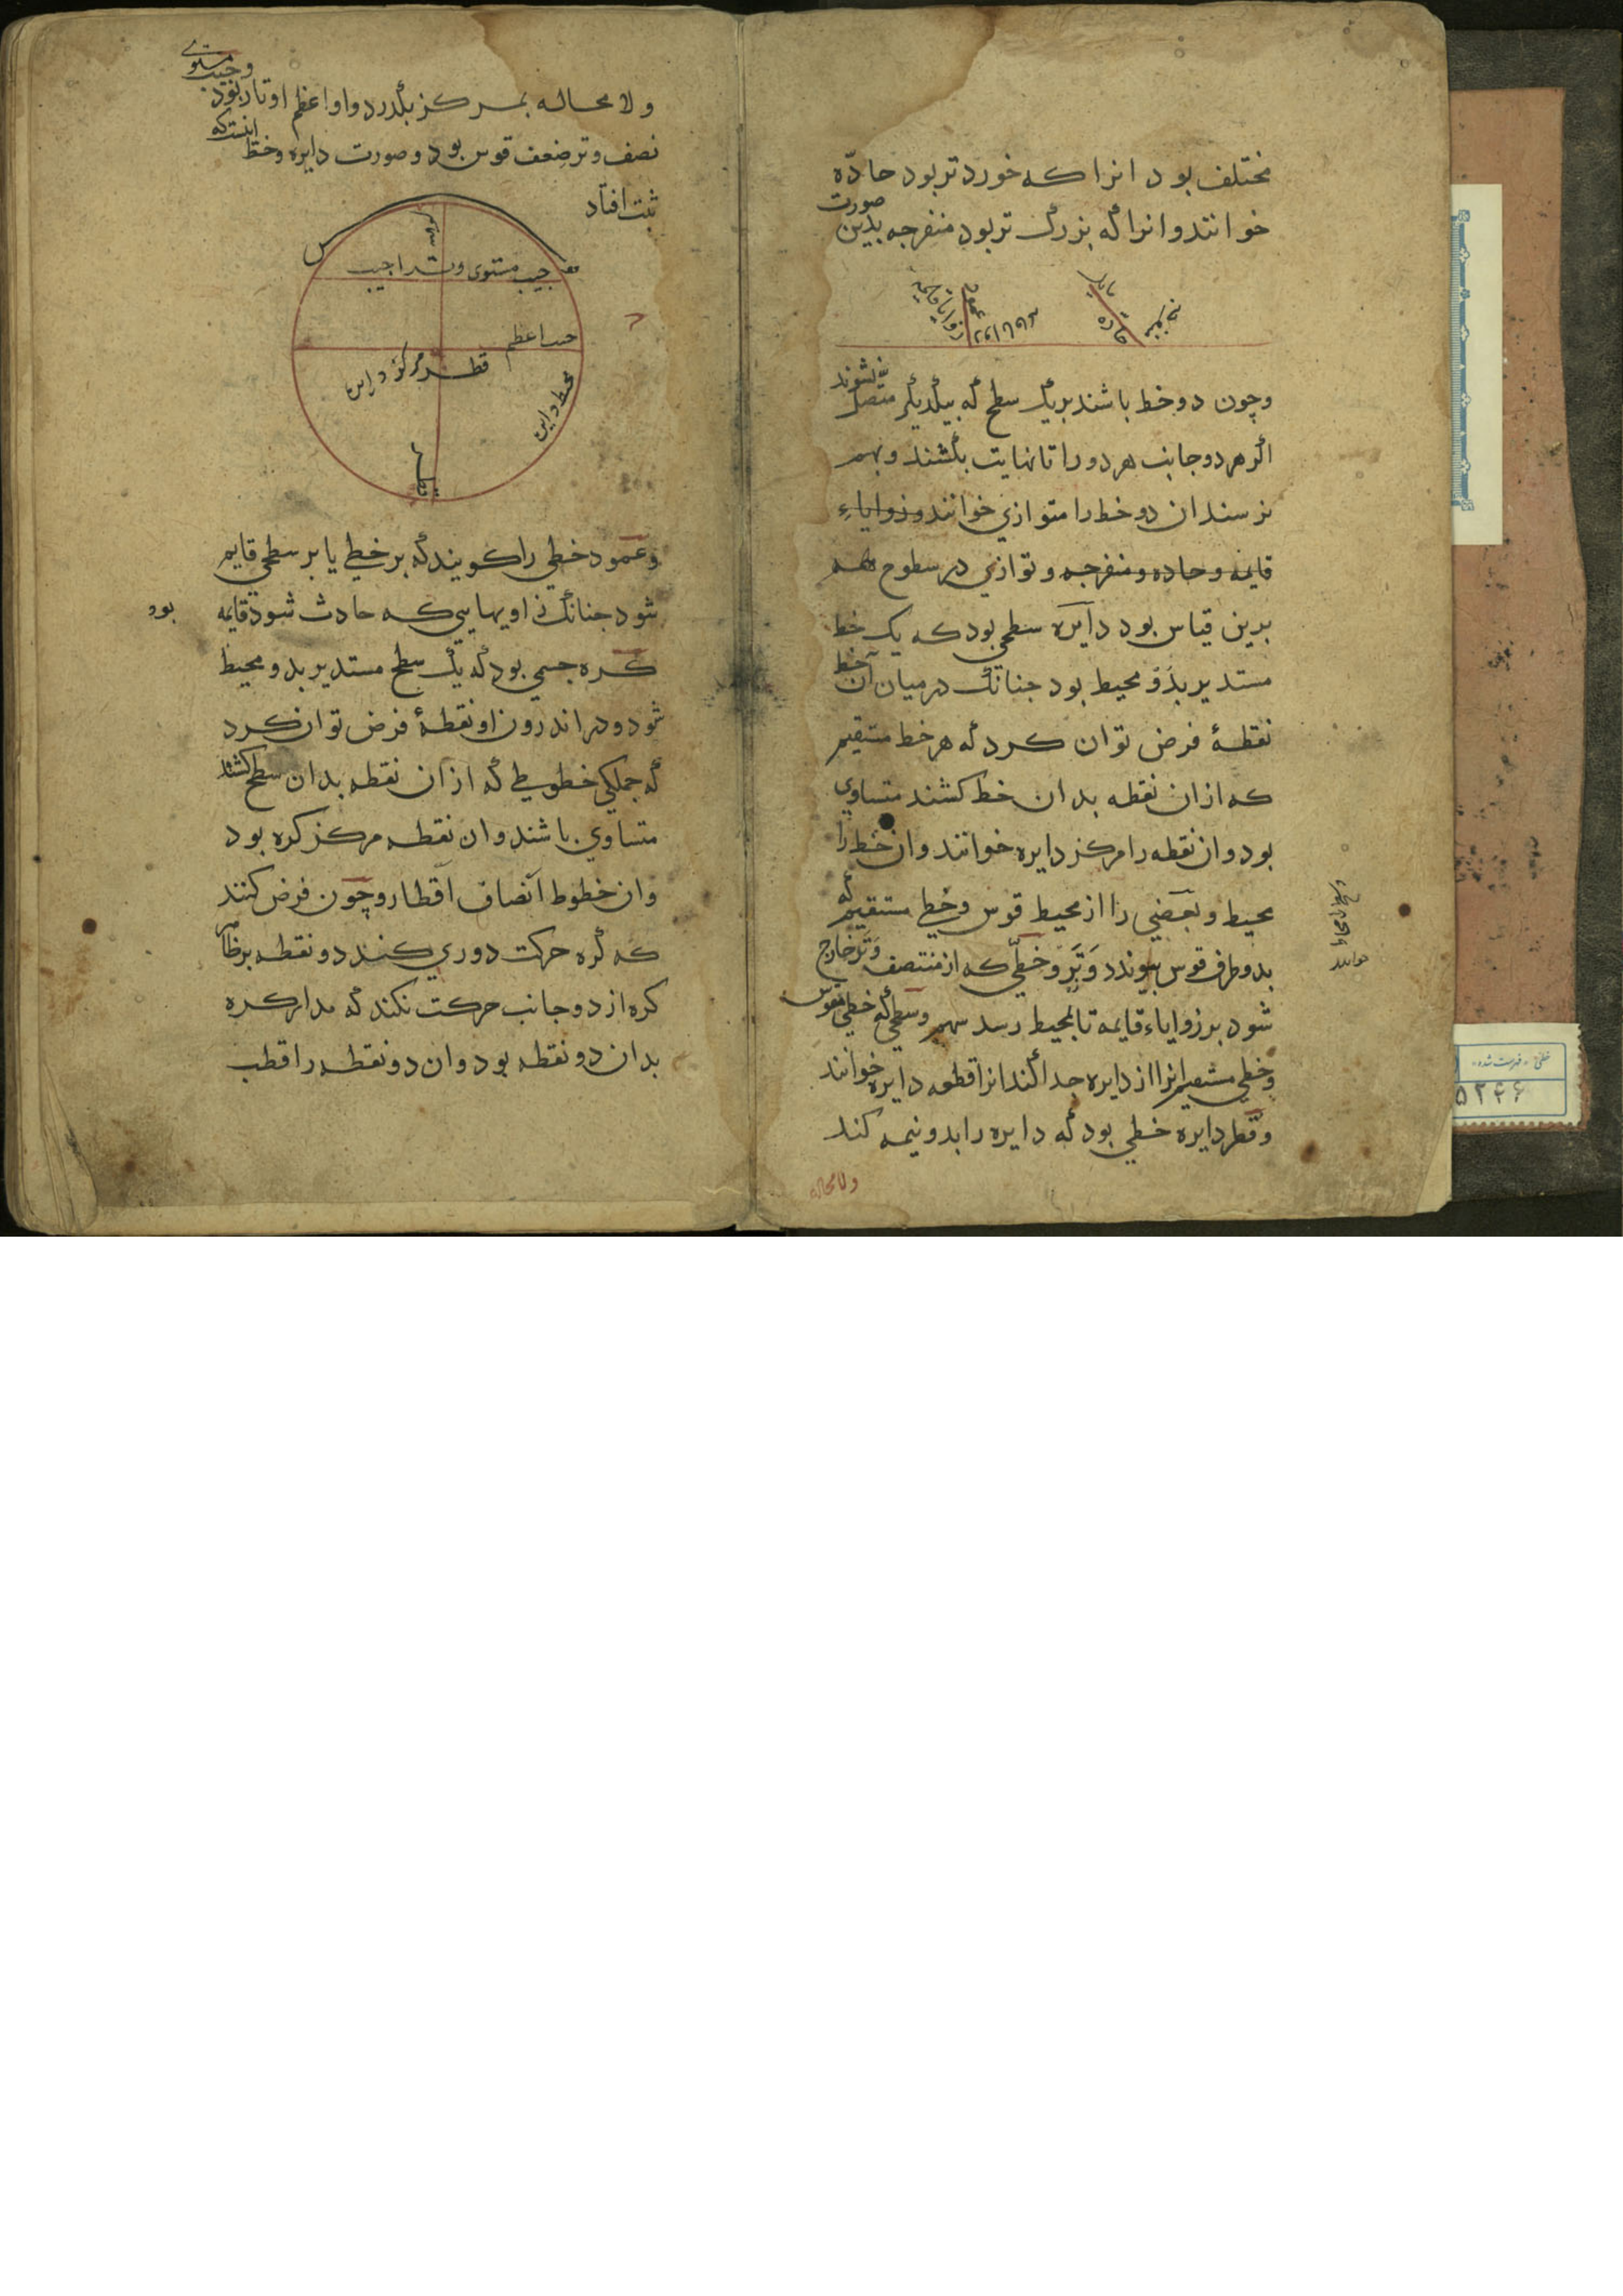 مختلف بود انرا که خورد تر بود حادّه
خوانند وانرا که بزرک تر بود منفرجه بدین صورت
عمود
حاده
وچون دو خط باشند بر یک سطح که بیکدیکر متصل نشوند
اکر هر دو جانب هر دو را تا نهایت بکشند و بهم
نرسند ان دو خط را متوازی خوانند وزوایاءِ
قایمه وحاده ومنفرجه وتوازی در سطوح همه
بدین قیاس بود دایره سطحی بود که یک خط
مستدیر بذو محیط بود جنانک در میان آن خط
نقطهٔ فرض توان کرد که هر خط مستقیم
که ازان نقطه بدان خط کشند متساوی
بود وان نقطه را مرکز دایره خوانند وان خط را
محیط وبعضی را از محیط قوس وخطی مستقیم که
بدو طرف قوس بیوندد وَتَر وخطّی که از منتصف وَتَر خارج
شود بر زوایاء قایمه تا بمحیط رسد سهم وسطحی که خطی مقوس
وخطی مستقیم انرا از دایره جدا کند انرا قطعه دایره خوانند
وقطر دایره خطی بود که دایره را بدو نیمه کند
ولا محاله
خطی - فهرست شده
۵۲۴۶
ولا محاله بمرکز بکذرد واو اعظم اوتار بود وجیب مستوی
نصف وتر ضعف قوس بود وصورت دایره وخط اینست که
ثبت افتاد
قوس
سهم
جیب مستوی وتر راجیب
جیب اعظم
قطر مرکز دایره
محیط دایره
قطر
وعمود خطی را کویند که بر خطی یا بر سطحی قایم
شود جنانک زاویهایی که حادث شود قایمه
بود
کره جسمی بود که یک سطح مستدیر بدو محیط
شود ودر اندرون او نقطهٔ فرض توان کرد
که جملکی خطوطی که از ان نقطه بدان سطح کشند
متساوی باشند وان نقطه مرکز کره بود
وان خطوط آنصاف اقطار وچون فرض کنند
که کره حرکت دوری کند دو نقطه بر ظاهر
کره از دو جانب حرکت نکند که مدار کره
بدان دو نقطه بود وان دو نقطه را قطب